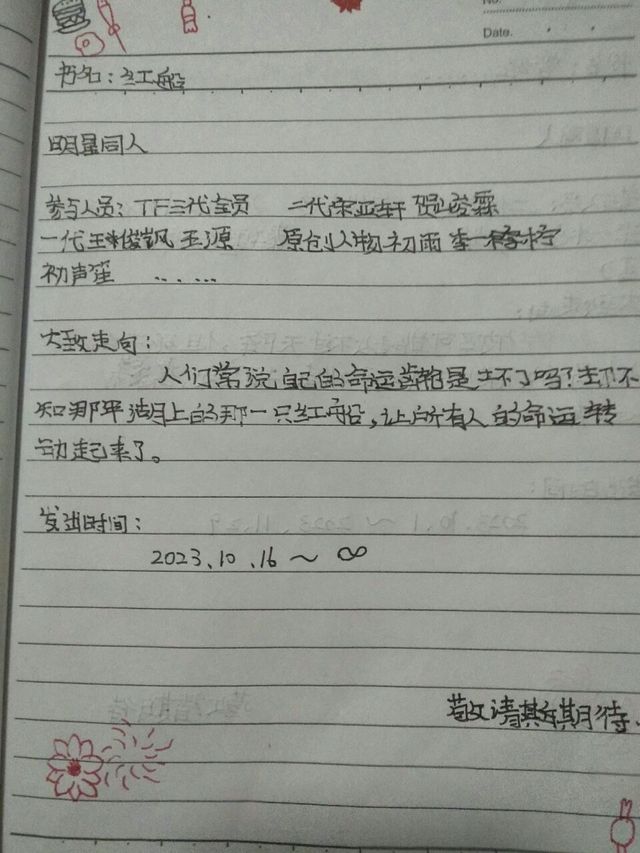 No.
Date.
书名：红船
明星同人
参与人员：TF三代全员 二代宋亚轩 贺峻霖
一代王俊凯 王源 原创人物初雨 李柠
初声笙 ......
大致走向：
人们常说自己的命运齿轮是坏了吗？却不
知那平湖上的那一只红船，让所有人的命运转
动起来了。
发出时间：
2023.10.16～∞
敬请期待.